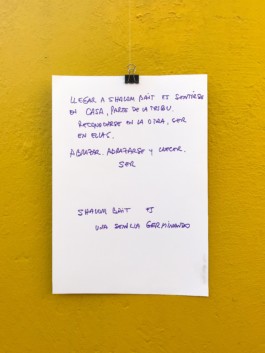 LLEGAR A SHALOM BAIT ES SENTIRSE
EN CASA, PARTE DE LA TRIBU.
RECONOCERSE EN LA OTRA, SER
EN ELLAS.
ABRAZAR. ABRAZARSE Y CRECER.
SER
SHALOM BAIT ES
UNA SEMILLA GERMINANDO